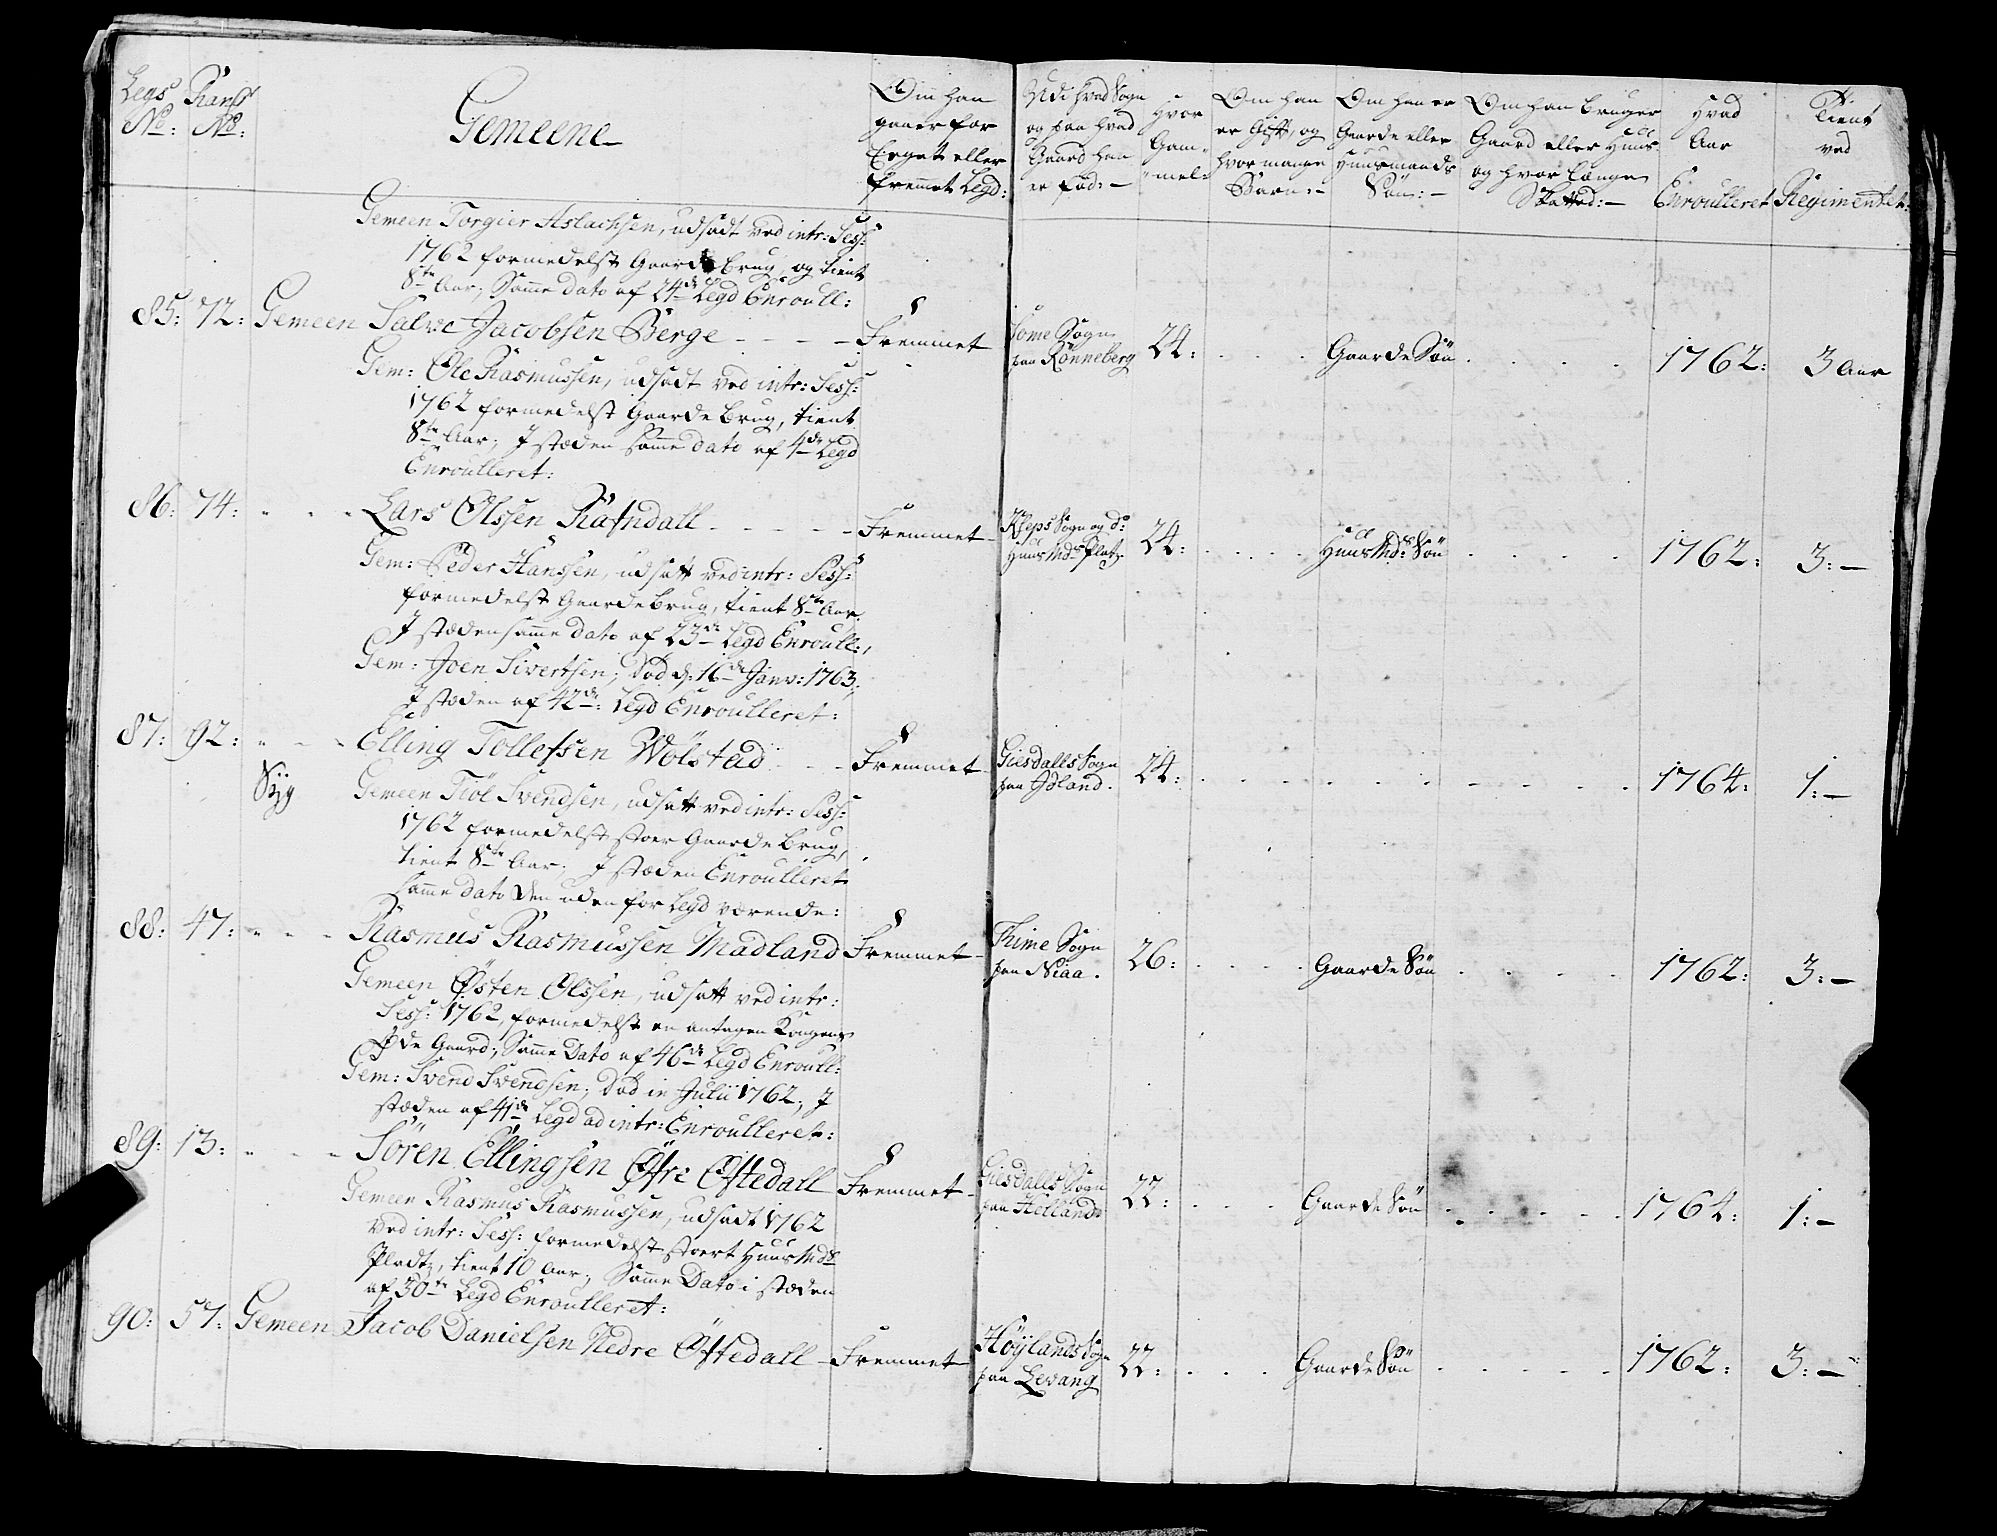 Legs No: Rangs No:
Gemeene
Om han gaaer for Eeget eller fremmet Legd:
Udi hvad Sogn og paa hvad Gaard han er fød:
Hvor Gammel:
Om han er Gift, og hvor mange Børn:
Om han er Gaarde eller Huusmands Søn:
Om han bruger Gaard eller Huus og hvor længe Skatted:
Hvad Aar Enroulleret
Tient ved Regimentet:
Gemeen Torgier Aslachsen, udsadt ved intr: Sess:
1762 formedelst Gaarde brug, og tient
8te Aar; Samme dato af 24de Legd Enroull:
85: 72: Gemeen Salve Jacobsen Berge - - - - Fremmet Some Sogn paa Rönneberg 24: - - - Gaarde Søn - - - - 1762: 3 Aar
Gem: Ole Rasmussen, udsadt ved intr: Sess:
1762 formedelst Gaarde brug, tient
8te Aar; I stæden samme dato af 4de Legd
Enroulleret:
86: 74: - - - Lars Olssen Rafndall - - - - Fremmet Kleps Sogn og do: Huus Mds Plats 24: - - - - Huus Mds: Søn - - - - 1762: 3: -
Gem: Peder Hanssen, udsatt ved intr: Sess:
formedelst Gaarde brug, tient 8te Aar
I stæden samme dato af 23de Legd Enroull:,
Gem: Joen Sivertsen, Död d: 16de Janv: 1763,
I stæden af 42de: Legd Enroulleret:
87: 92: - - - Elling Tollefssen Wölstad - - Fremmet Giesdalls Sogn paa Idland. 24: - - - - - - - - 1764: 1: -
Syg
Gemeen Tiöl Svendsen, udsatt ved intr: Sess:
1762 formedelst stoer Gaarde brug,
tient 8te Aar; I stæden Enroulleret
samme dato den uden for Legd værende:
88: 47: - - - Rasmus Rasmussen Madland Fremmet Thime Sogn paa Niaa. 26: - - - - Gaarde Søn - - - - 1762: 3: -
Gemeen Østen Olssen, udsatt ved intr:
Sess: 1762, formedelst en antagen Kongens
Øde Gaard; Samme Dato af 46de Legd Enroull:
Gem: Svend Svendsen; Död in Julii 1762; I
stæden af 41de Legd ad intr: Enroulleret:
89: 13: - - - Sören Ellingsen Øfre Oftedall Fremmet Giesdalls Sogn paa Helland 22: - - - Gaarde Søn - - - - - 1764: 1: -
Gemeen Rasmus Rasmussen, udsadt 1762
ved intr: Sess: formedelst stoert Huus Mds
Pladtz, tient 10 Aar; Samme Dato i stæden
af 30te Legd Enroulleret:
90: 57: Gemeen Jacob Danielsen Nedre Oftedall - Fremmet Höylands Sogn paa Levang 22: - - - Gaarde Søn - - - - - 1762: 3: -